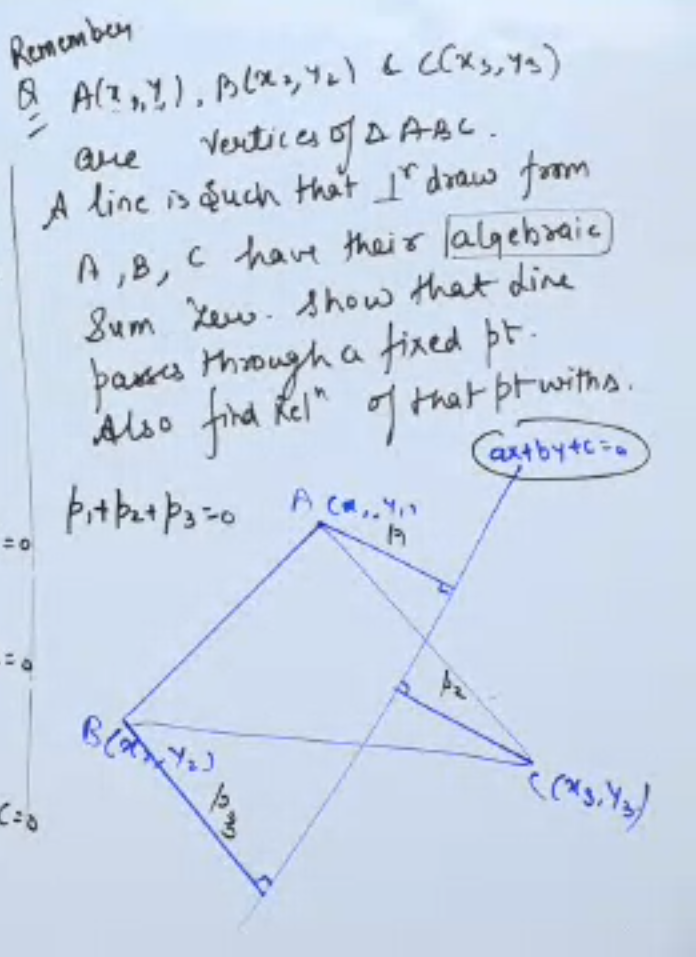 Remember
Q A(x₁,y₁), B(x₂,y₂) & C(x₃,y₃)
are vertices of Δ ABC.
A line is such that ⊥ʳ draw from
A, B, C have their algebraic
Sum zero. Show that line
passes through a fixed pt.
Also find relⁿ of that pt with Δ.
ax+by+c=0
p₁+p₂+p₃=0
A(x₁,y₁)
p₁
=0
=0
p₂
B(x₂,y₂)
p₃
C(x₃,y₃)
C=0